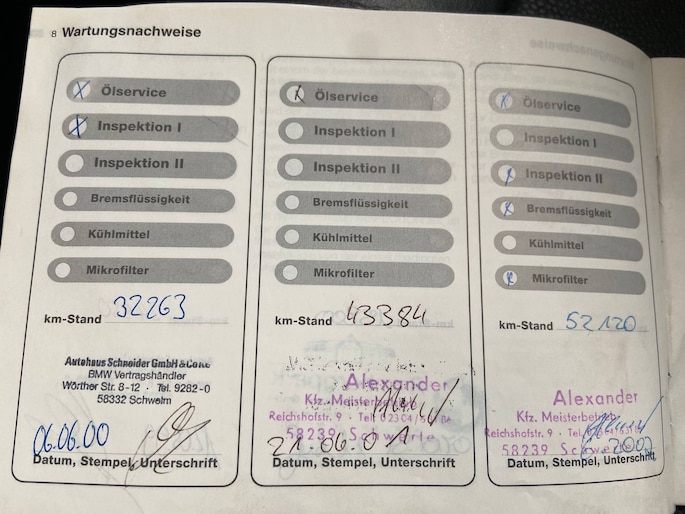 8 Wartungsnachweise
X Ölservice
X Inspektion I
Inspektion II
Bremsflüssigkeit
Kühlmittel
Mikrofilter
km-Stand 32263
Autohaus Schneider GmbH & Co KG
BMW Vertragshändler
Wörther Str. 8-12 · Tel. 9282-0
58332 Schwelm
06.06.00
Datum, Stempel, Unterschrift
X Ölservice
Inspektion I
Inspektion II
Bremsflüssigkeit
Kühlmittel
Mikrofilter
km-Stand 43384
Alexander
Kfz. Meisterbetrieb
Reichshofstr. 9 · Tel.
58239 Schwerte
21.06.01
Datum, Stempel, Unterschrift
X Ölservice
Inspektion I
X Inspektion II
X Bremsflüssigkeit
Kühlmittel
X Mikrofilter
km-Stand 52120
Alexander
Kfz. Meisterbetrieb
Reichshofstr. 9 · Tel.
58239 Schwerte
2002
Datum, Stempel, Unterschrift